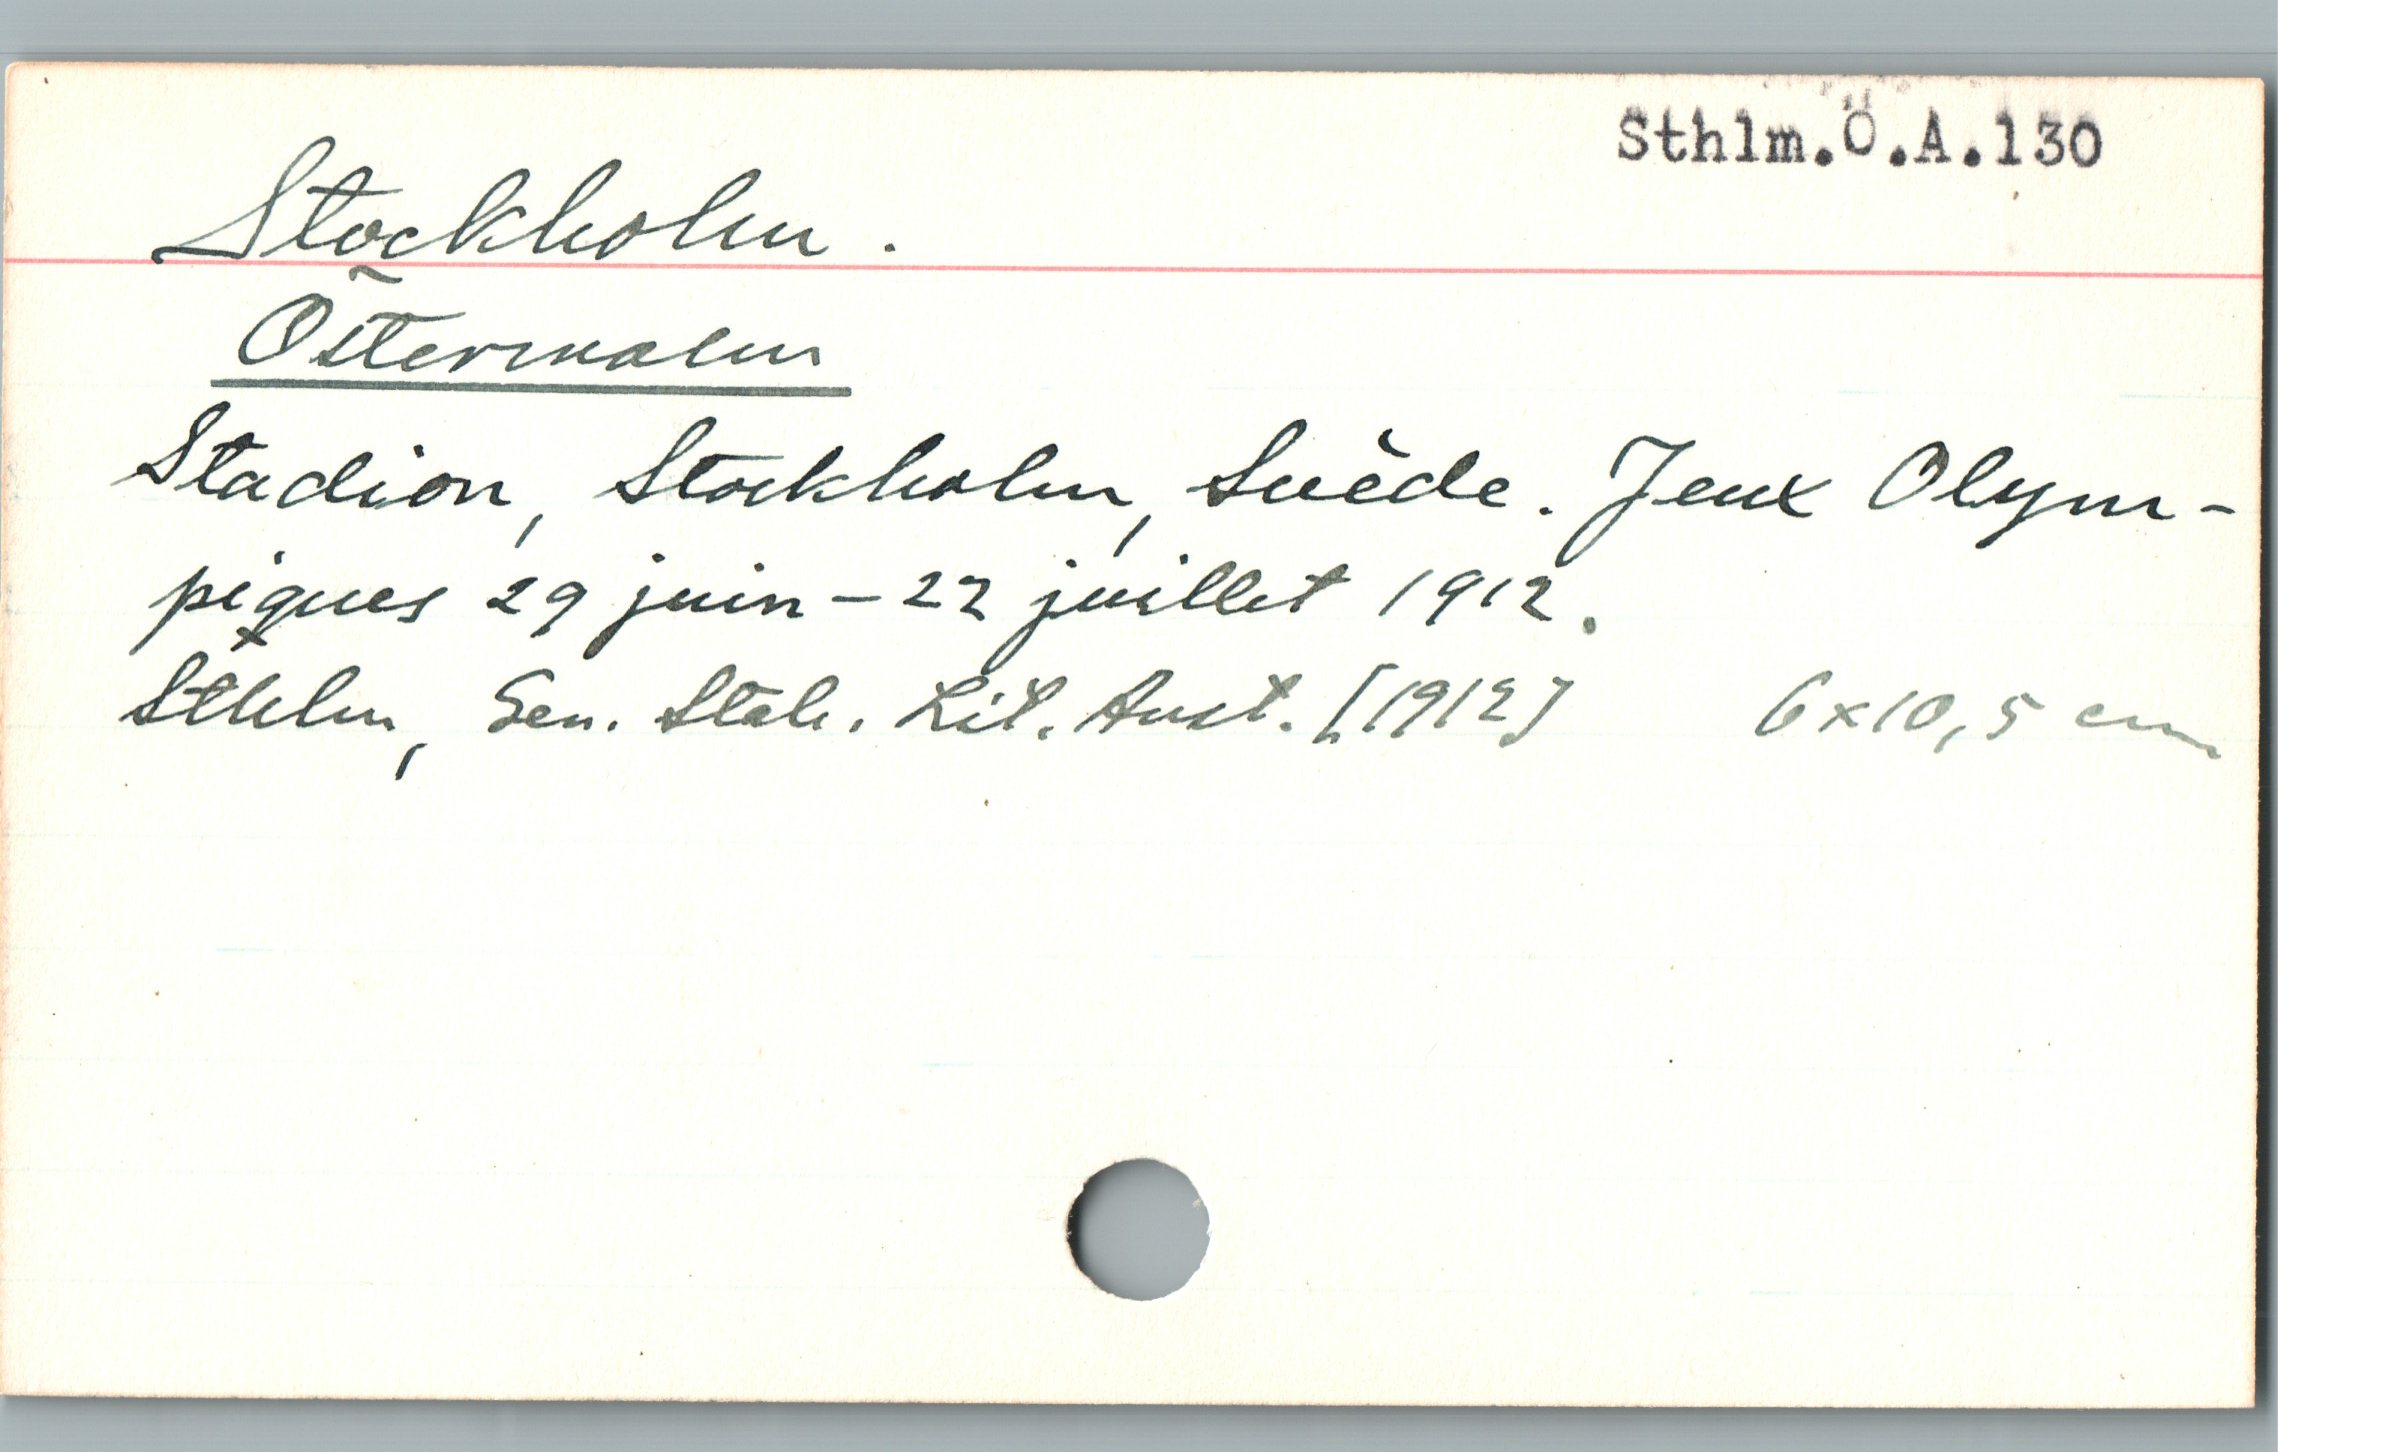 Sthlm.Ö.A.130
Stockholm.
Östermalm
Stadion, Stockholm, Suède. Jeux Olym-
piques 29 juin – 22 juillet 1912.
Sthlm, Gen. Stab. Lit. Anst. [1912] 6x10,5 cm